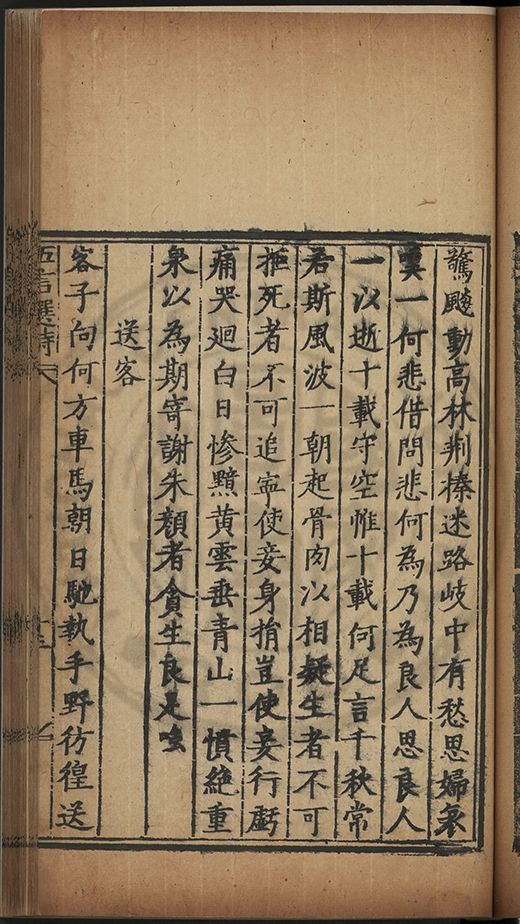 驚飈動高林荆榛迷路岐中有愁思婦哀
一何悲借問悲何為乃為良人思良人
一以逝十載守空惟十載何足言千秋常
若斯風波一朝起骨肉以相疑生者不可
拒死者不可追寍使妾身捐豈使妾行虧
痛哭廻白日慘黯黄雲垂青山一憤絶重
泉以為期寄謝朱顔者貪生良足嗤
送客
客子向何方車馬朝日馳執手野彷徨送
五言選詩
十三